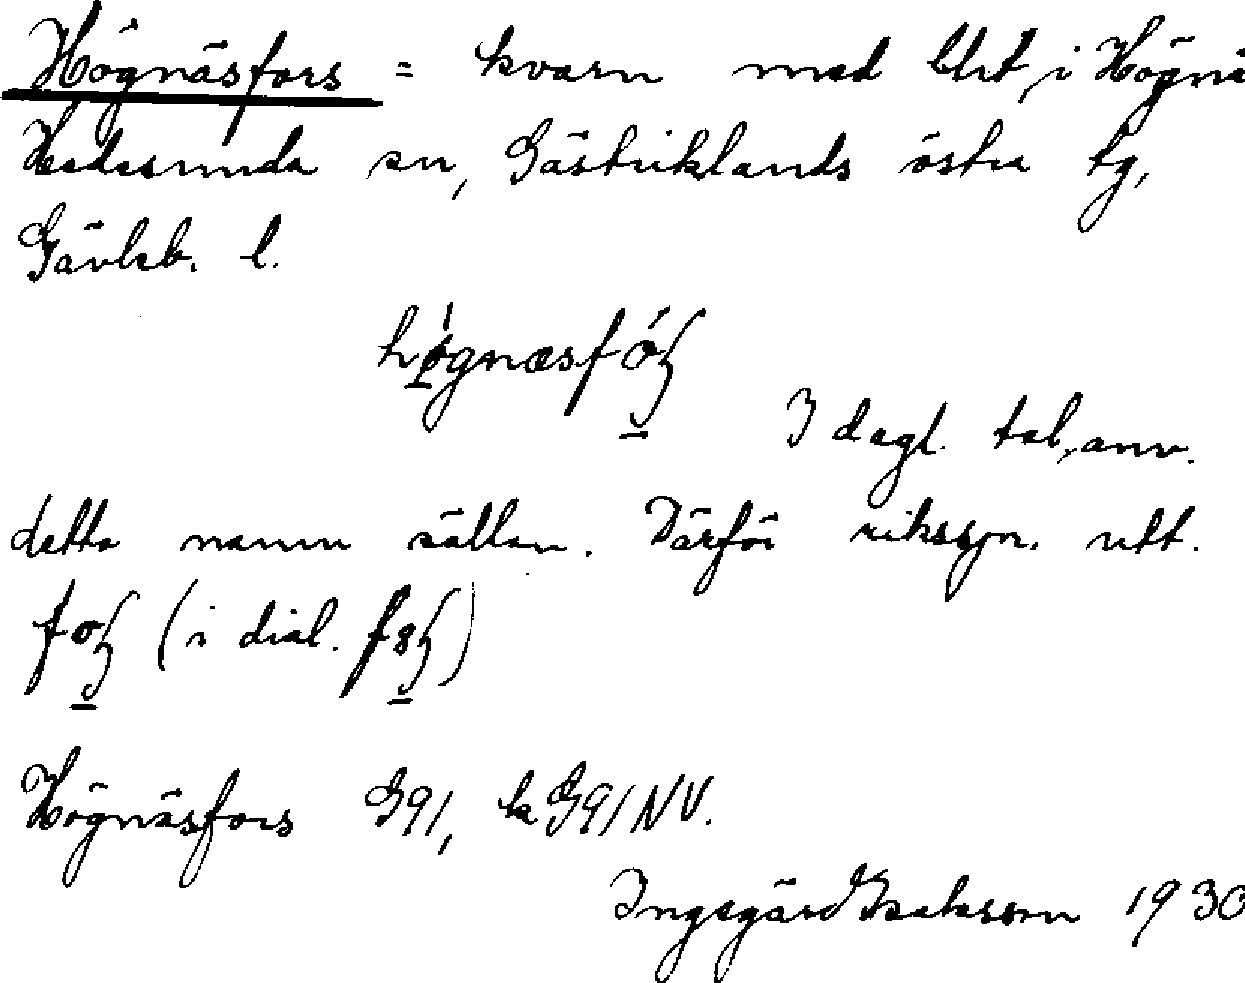 Högnäsfors = kvarn med lht, i Högnä
Hedesunda sn, Gästriklands östra tg,
Gävleb. l.
høgnæsfóꞎ
I dagl. tal, anv.
detta namn sällan. Därför riksspr. utt.
foꞎ (i dial. f8ꞎ)
Högnäsfors G91, kG91NV.
Ingegärd Isaksson 1930